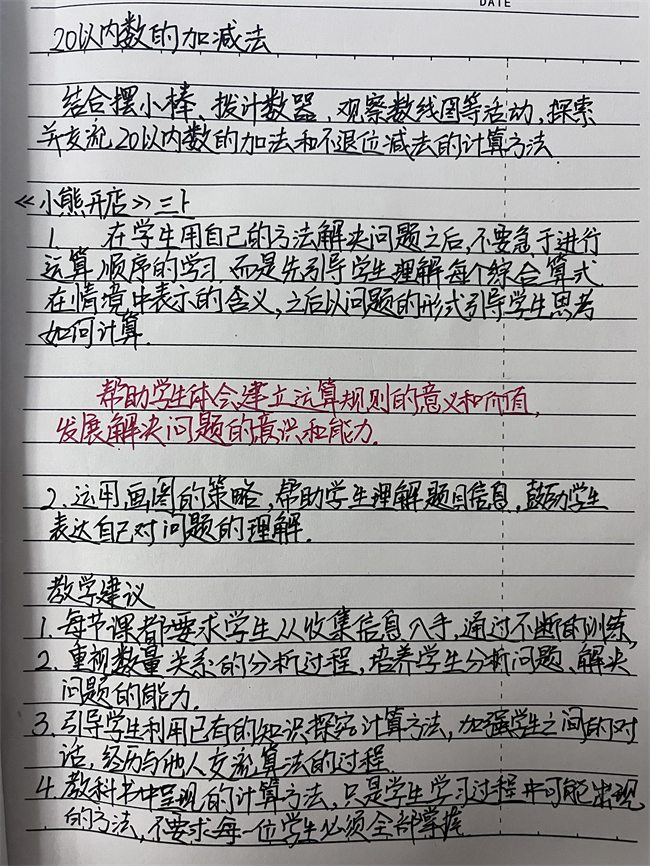 DATE
20以内数的加减法
结合摆小棒、拨计数器、观察数线图等活动,探索
并交流20以内数的加法和不退位减法的计算方法
《小熊开店》三上
1. 在学生用自己的方法解决问题之后,不要急于进行
运算顺序的学习 而是先引导学生理解每个综合算式
在情境中表示的含义,之后以问题的形式引导学生思考
如何计算.
帮助学生体会建立运算规则的意义和价值,
发展解决问题的意识和能力.
2.运用画图的策略,帮助学生理解题目信息,鼓励学生
表达自己对问题的理解.
教学建议
1.每节课都要求学生从收集信息入手,通过不断的训练,
2.重视数量关系的分析过程,培养学生分析问题、解决
问题的能力.
3.引导学生利用已有的知识探究计算方法,加强学生之间的对
话,经历与他人交流算法的过程.
4.教科书中呈现的计算方法,只是学生学习过程中可能出现
的方法,不要求每一位学生必须全部掌握